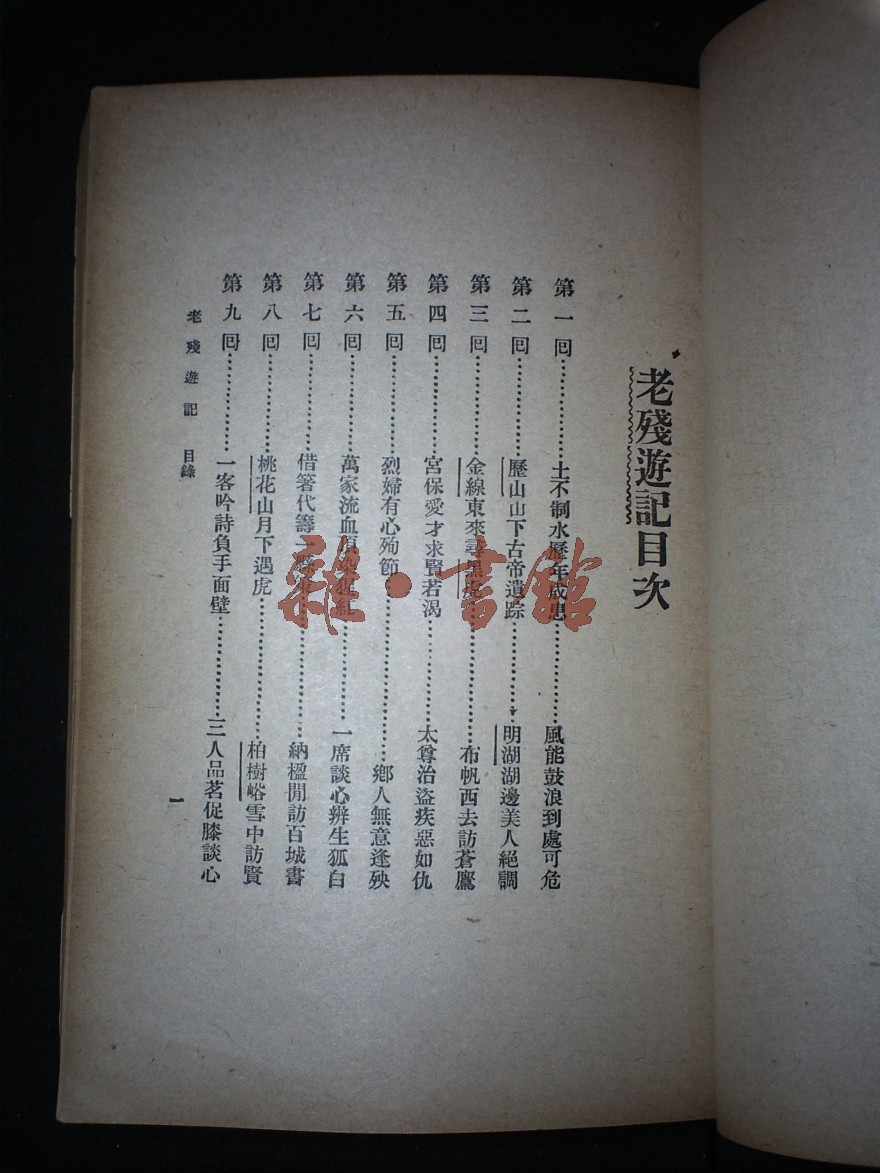 老殘遊記目次
第一回……………土不制水歷年成患……………風能鼓浪到處可危
第二回……………歷山山下古帝遺踪……………明湖湖邊美人絕調
第三回……………金線東來尋黑虎……………布帆西去訪蒼鷹
第四回……………宮保愛才求賢若渴……………太尊治盜疾惡如仇
第五回……………烈婦有心殉節……………鄉人無意逢殃
第六回……………萬家流血頂染猩紅……………一席談心辨生狐白
第七回……………借箸代籌一縣策……………納楹閒訪百城書
第八回……………桃花山月下遇虎……………柏樹峪雪中訪賢
第九回……………一客吟詩負手面壁……………三人品茗促膝談心
老殘遊記 目錄
一
雜·書館